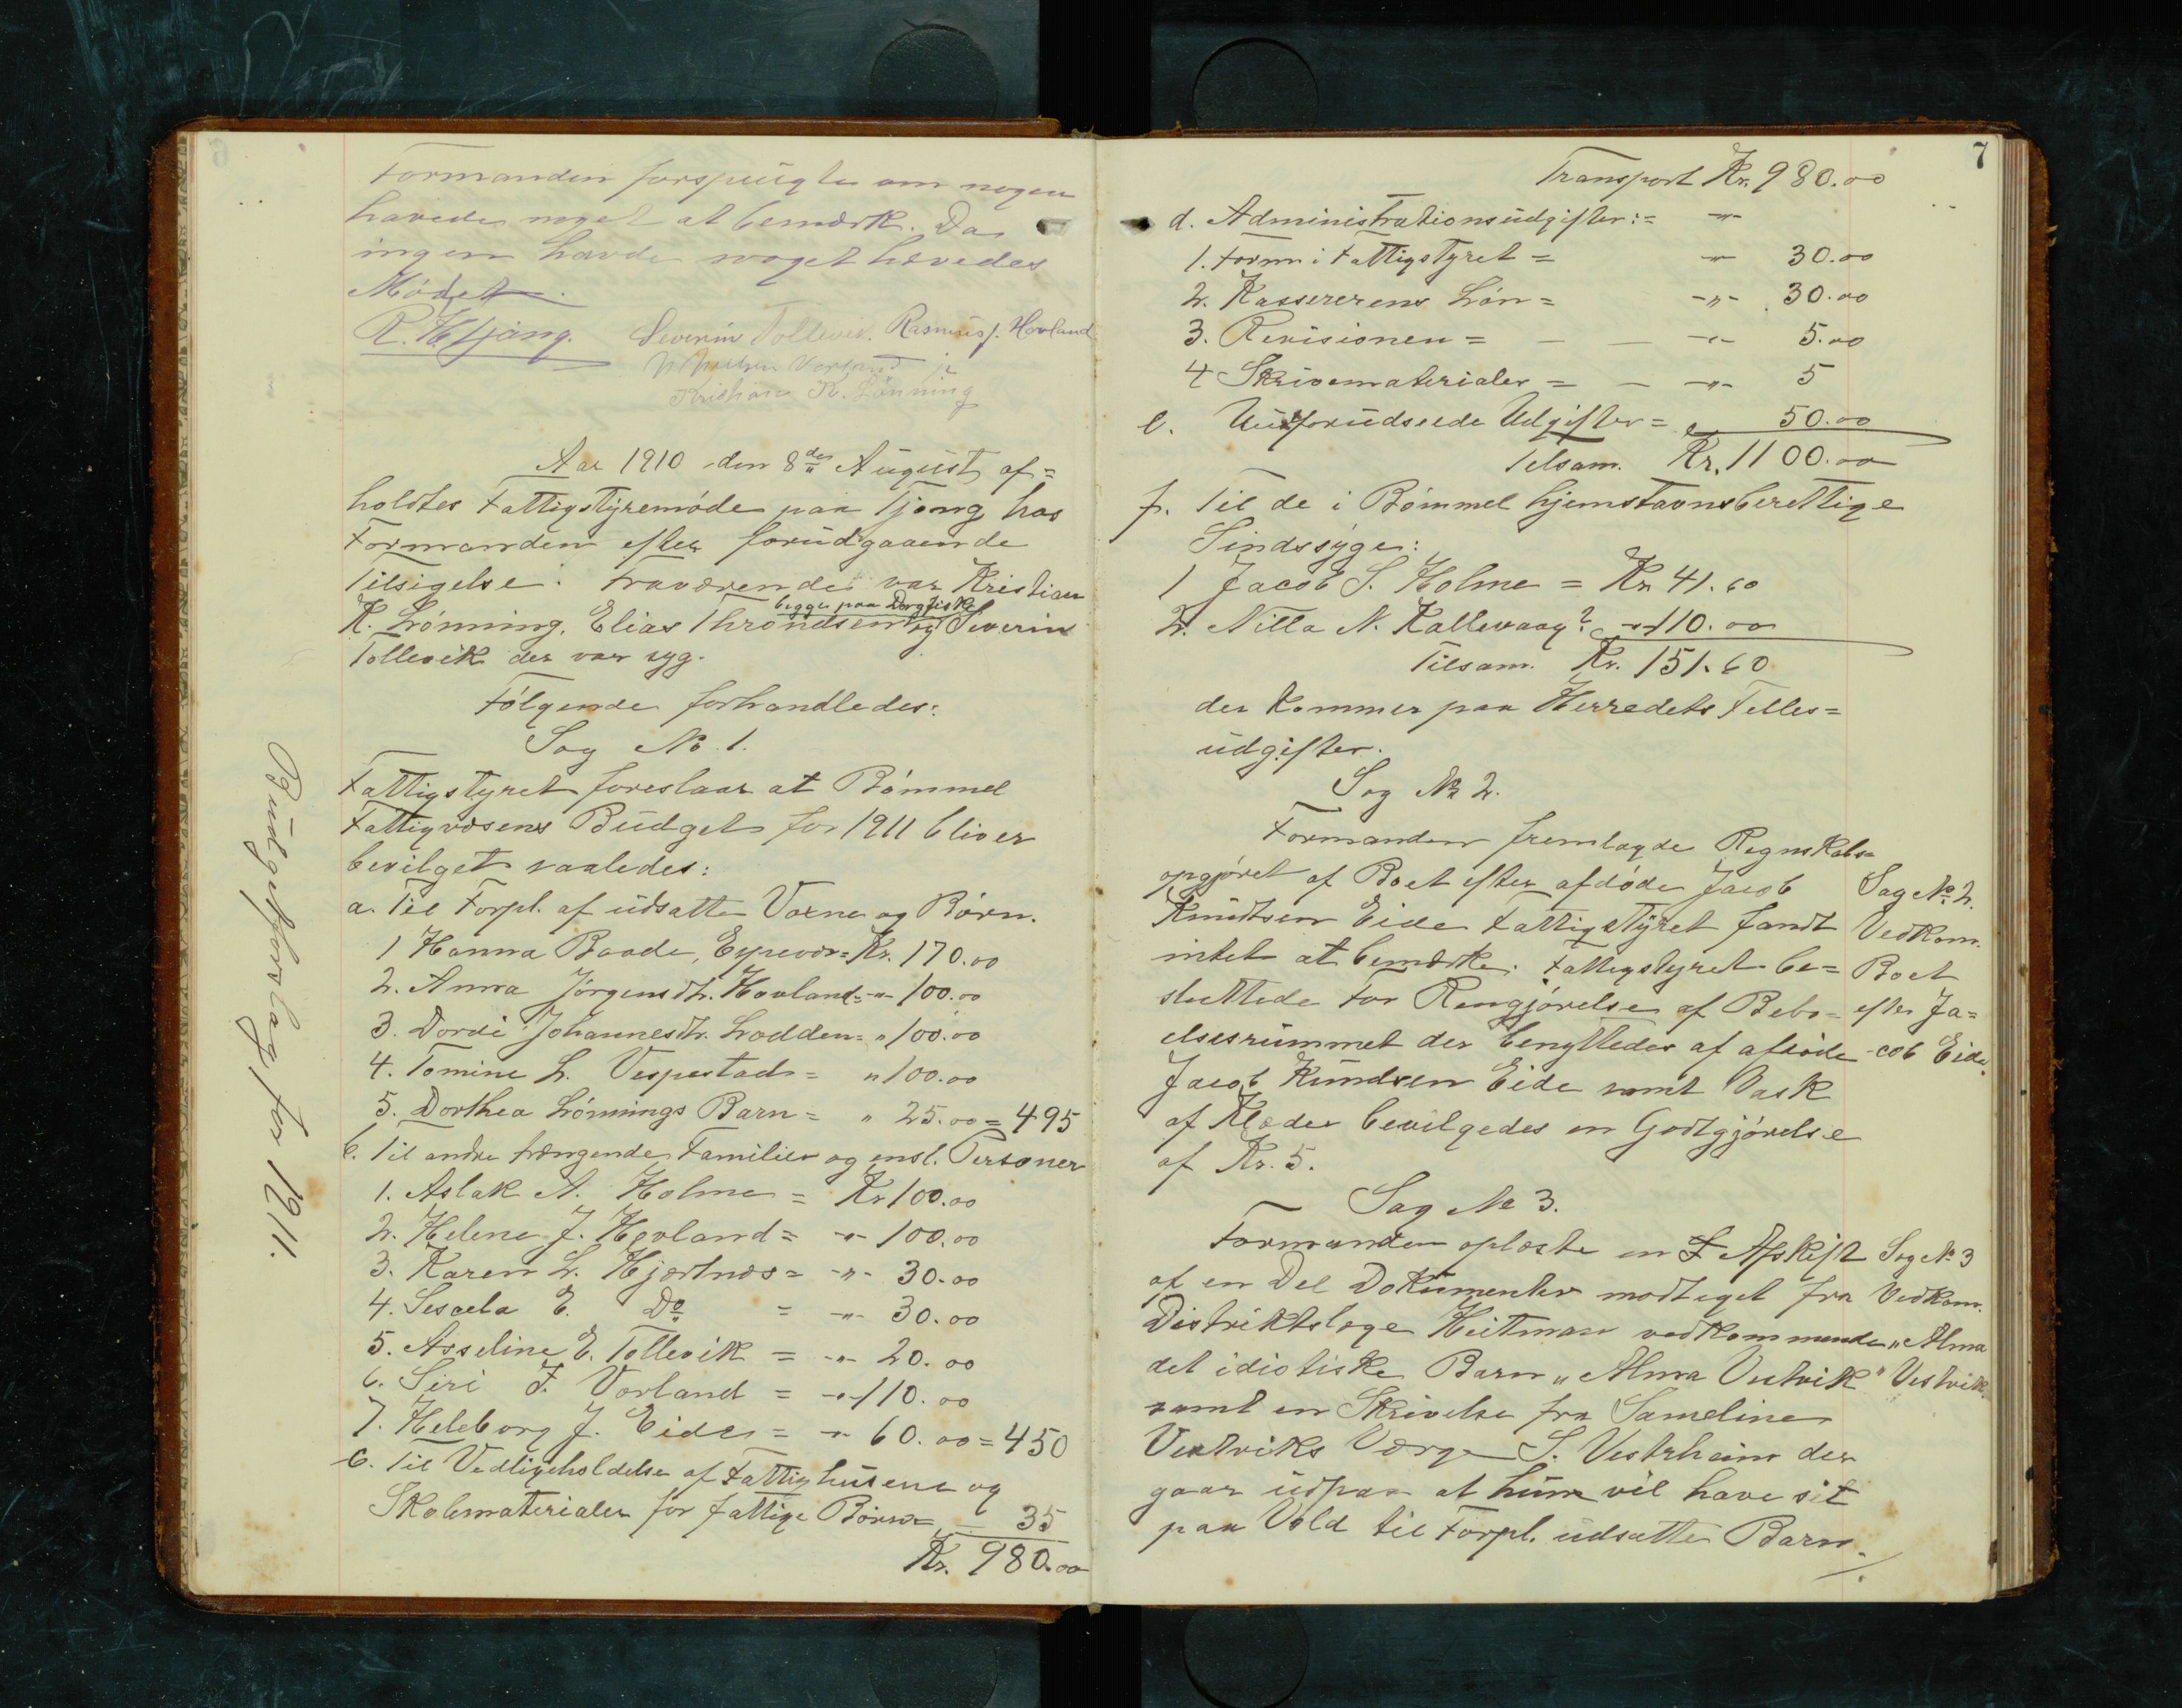 Formanden forspurgte om nogen
havede noget at bemærk. Da
ingen havde noget hævedes
Mødet.
R. H. Tjong. Severin Tollevik. Rasmus J. Hovland
Vorland
Kristian K. Lønning
Aar 1910 den 8de August af=
holdtes Fattigstyremøde paa Tjong hos
Formanden efter forudgaaende
Tilsigelse. Fraværende var Kristian
begge paa Dorgfiske
K. Lønning, Elias Throndsen og Severin
Tollevik der var syg.
Følgende forhandledes:
Sag No. 1.
Fattigstyret foreslaar at Bømmel
Fattigvæsens Budget for 1911 bliver
bevilget saaledes:
a. Til Forpl. af udsatte Voxne og Børn.
1 Hanna Baade, Espevær = Kr. 170.00
2. Anna Jørgensdtr. Hovland = -"- 100.00
3. Dordi Johannesdtr. Lodden = " 100.00
4. Tomine L. Vespestad = " 100.00
5. Dorthea Lønnings Barn = " 25.00 = 495
b. Til andre trængende Familier og ensl. Personer
1. Aslak A. Holme = Kr 100.00
2. Helene J. Hovland = -"- 100.00
3. Karen L. Hjertnæs = -"- 30.00
4. Sesaela E. Do = -"- 30.00
5. Asseline E. Tollevik = -"- 20.00
6. Siri F. Vorland = -"- 110.00
7. Heleborg J. Eide = -"- 60.00 = 450
c. Til Vedligeholdelse af Fattighusene og
Skolematerialer for fattige Børn = 35
Kr. 980.00
Budgetforslag for 1911.
7
Transport Kr. 980.00
d. Administrationsudgifter: = -"-
1. Form i Fattigstyret = -"- 30.00
2. Kassererens Løn = -"- 30.00
3. Revisionen = — — -"- 5.00
4 Skrivematerialer = — -"- 5
e. Uudforudseede Udgifter = 50.00
Telsam. Kr. 1100.00
f. Til de i Bømmel hjemstavnsberettige
Sindssyge:
1 Jacob S. Holme = Kr. 41.60
2. Nilla N. Kallevaag? -"- 110.00
Tilsam. Kr. 151.60
der kommer paa Herredets Felles=
udgifter.
Sag No 2.
Formanden fremlagde Regnskabs=
opgjøret af Boet efter afdøde Jacob
Knudtsen Eide Fattigstyret fandt
intet at bemærke. Fattigstyret be=
sluttede for Rengjørelse af Bebo=
elsesrummet der benyttedes af afdøde
Jacob Knudsen Eide samt Vask
af Klæder bevilgedes en Godtgjørelse
af Kr. 5.
Sag No 2.
Vedkom.
Boet
efter Ja=
cob Eide.
Sag No 3.
Formanden oplæste en F Afskift
af en Del Dokumenter modtaget fra
Distriktslæge Heitman vedkommende
det idiotiske Barn "Alma Vestvik"
samt en Skrivelse fra Sameline
Vestviks Værge S. Vestrheim der
gaar udpaa at hun vil have sit
paa Vold til Forpl. udsatte Barn.
Sag No 3
Vedkom.
"Alma
Vestvik.